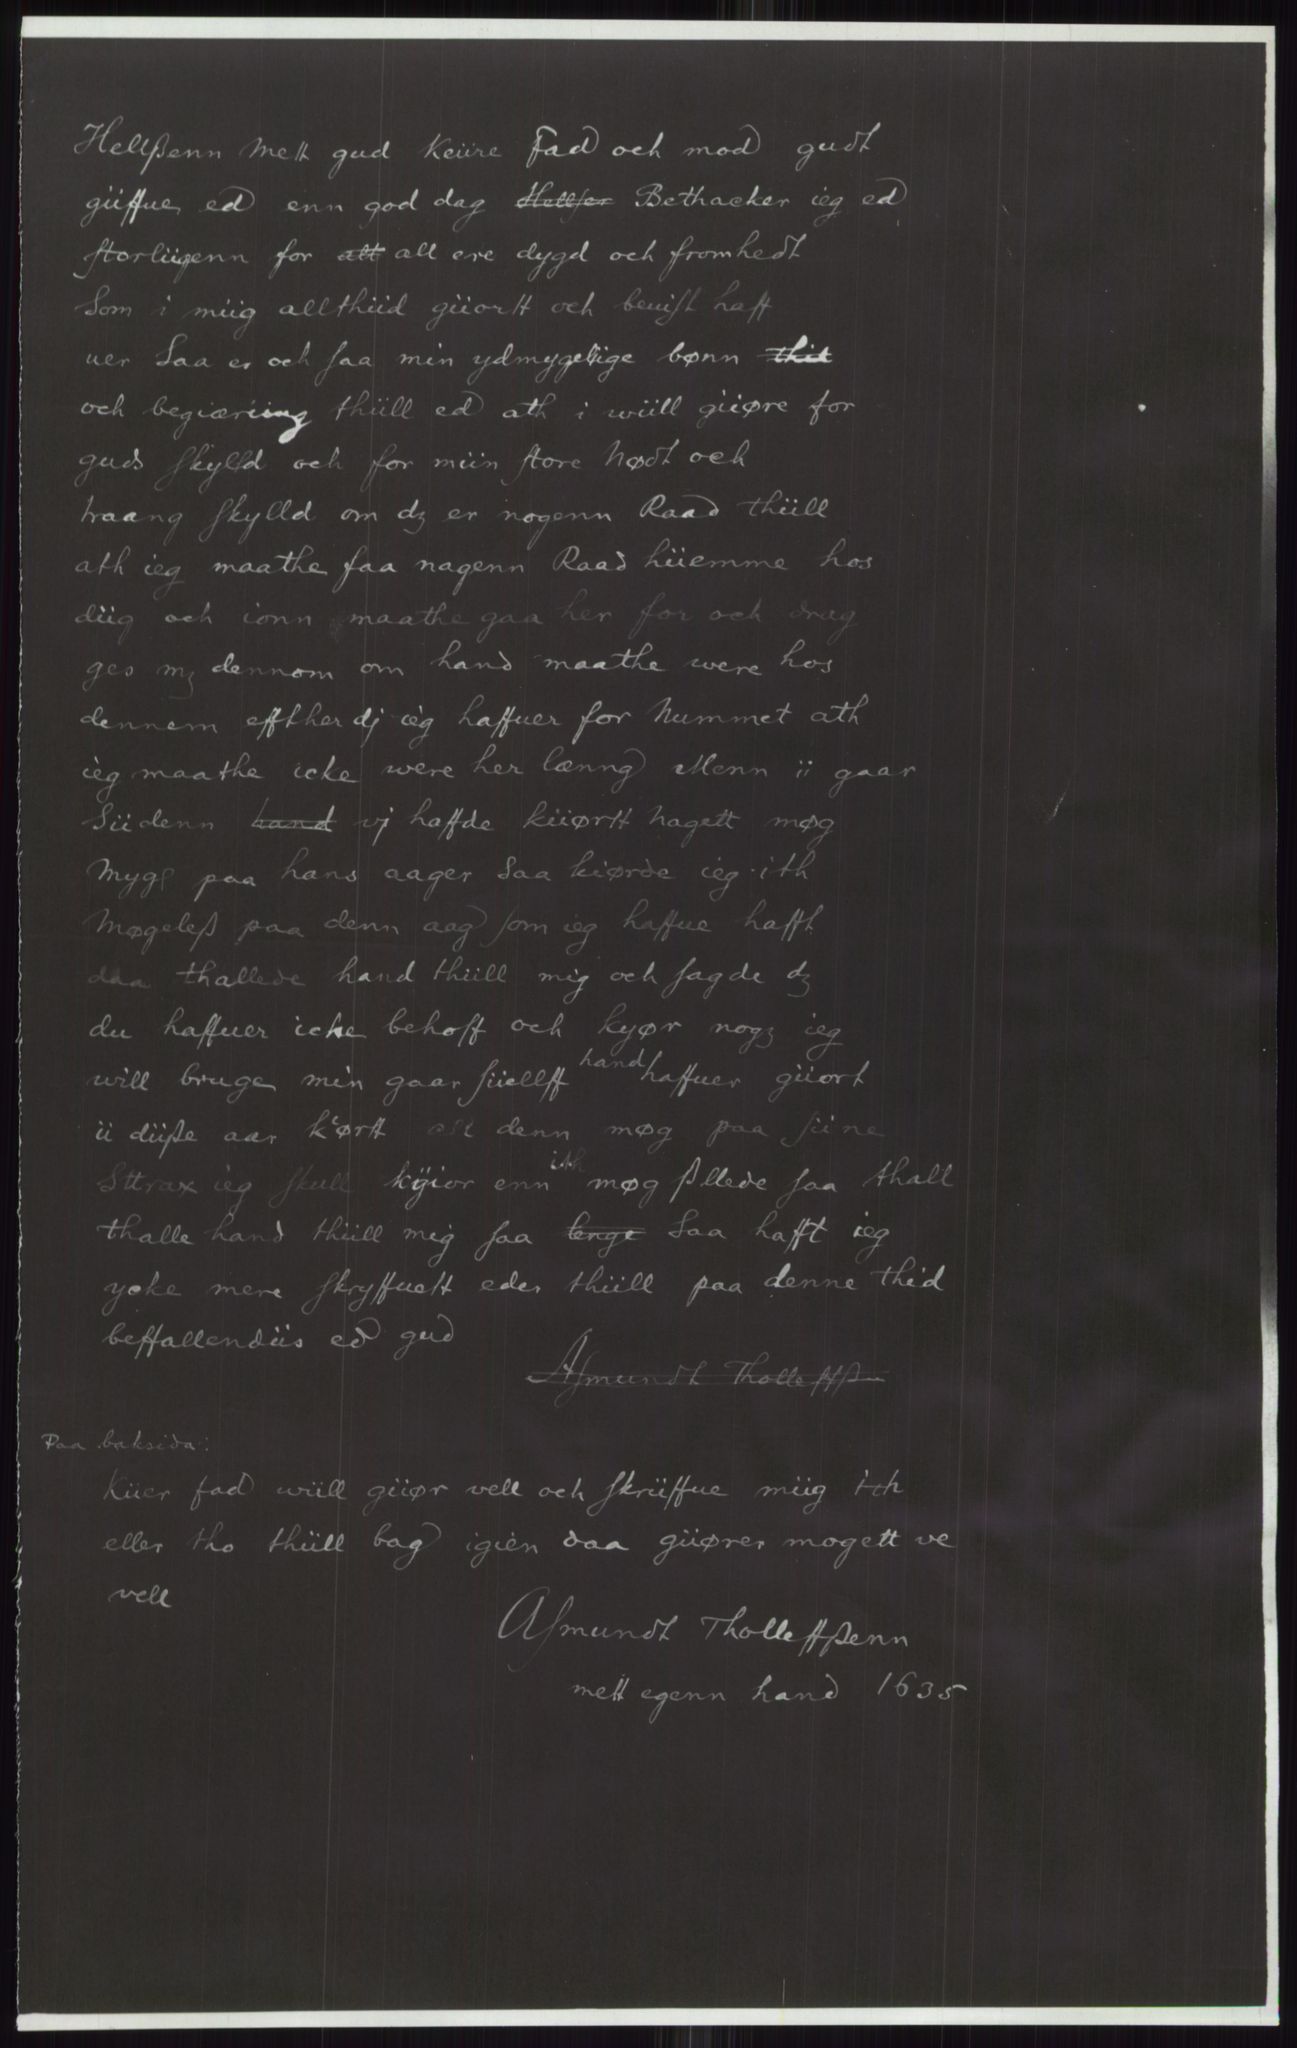 Hellßenn Mett gud Keüre Fad och mod gudt
güffue ed enn god dag Hellser Bethacker ieg ed
storlügenn for alt all ere dygd och fromhedt
Som i müg allthüd güortt och beuist haff
uer Saa er och saa min ydmygelige bønn thil
och begiæring thüll ed ath i wüll güøre for
guds skylld och for müin store Nødt och
traang skylld om dz er nogenn Raad thüll
ath ieg maathe faa nagenn Raad hüemme hos
düg och ionn maathe gaa her for och drag
ges mz dennom om hand maathe were hos
dennem effther dj ieg haffuer for Nummet ath
ieg maathe icke were her længe Menn ii gaar
Südenn hand vj haffde küørtt Nagett møg
Myge paa hans aager Saa kiørde ieg ith
Møgeleß paa denn aag som ieg haffue hafft
daa thallede hand thüll mig och sagde dz
du haffuer icke behoff och kyør nogz ieg
will bruge min gaar süellff hand haffuer güort
ii düße aar kiørtt all denn møg paa süne
Sttrax ieg skull kÿior enn ith møg ßllede saa thall
thalle hand thüll mig saa lenge Saa hafft ieg
ycke mere skryffuett eder thüll paa denne thid
beffallendüs ed gud
Asmundt Tholleffßn
Paa baksida:
Küer fad wüll güør vell och skrüffue müg ith
eller tho thüll bag igien daa güører mogett ve
vell
Asmundt Tholleffßenn
mett egenn hand 1635